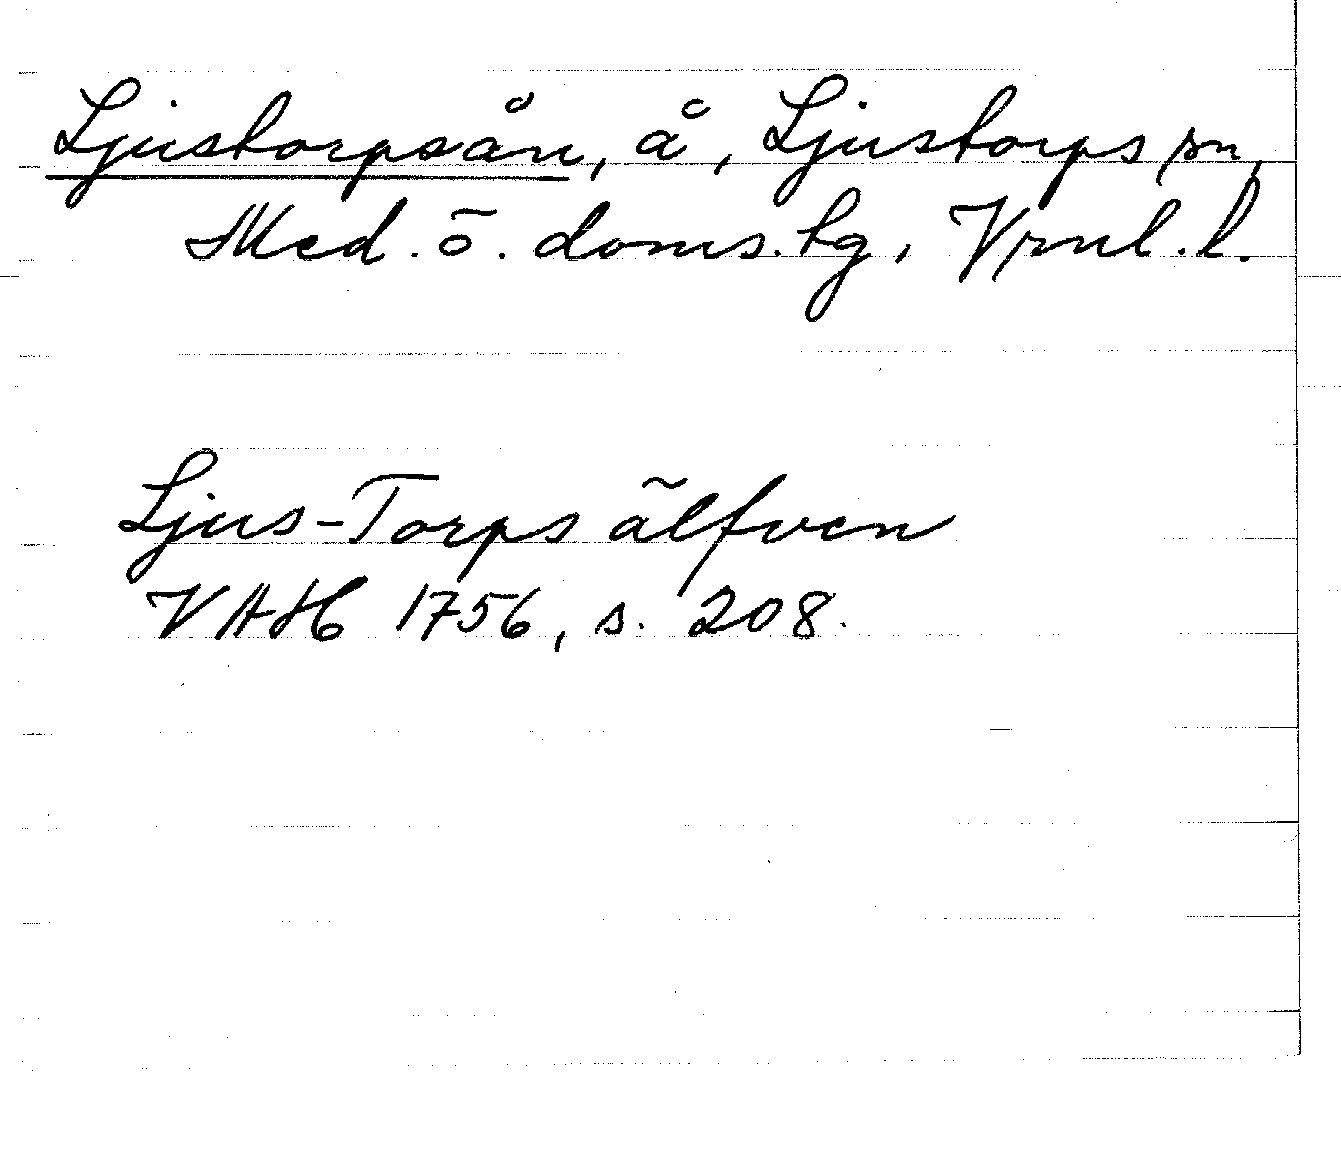 Ljustorpsån, å, Ljustorps sn,
Med. ö. doms. tg, Vrnl. l.
Ljus-Torps älfven
VAH 1756, s. 208.